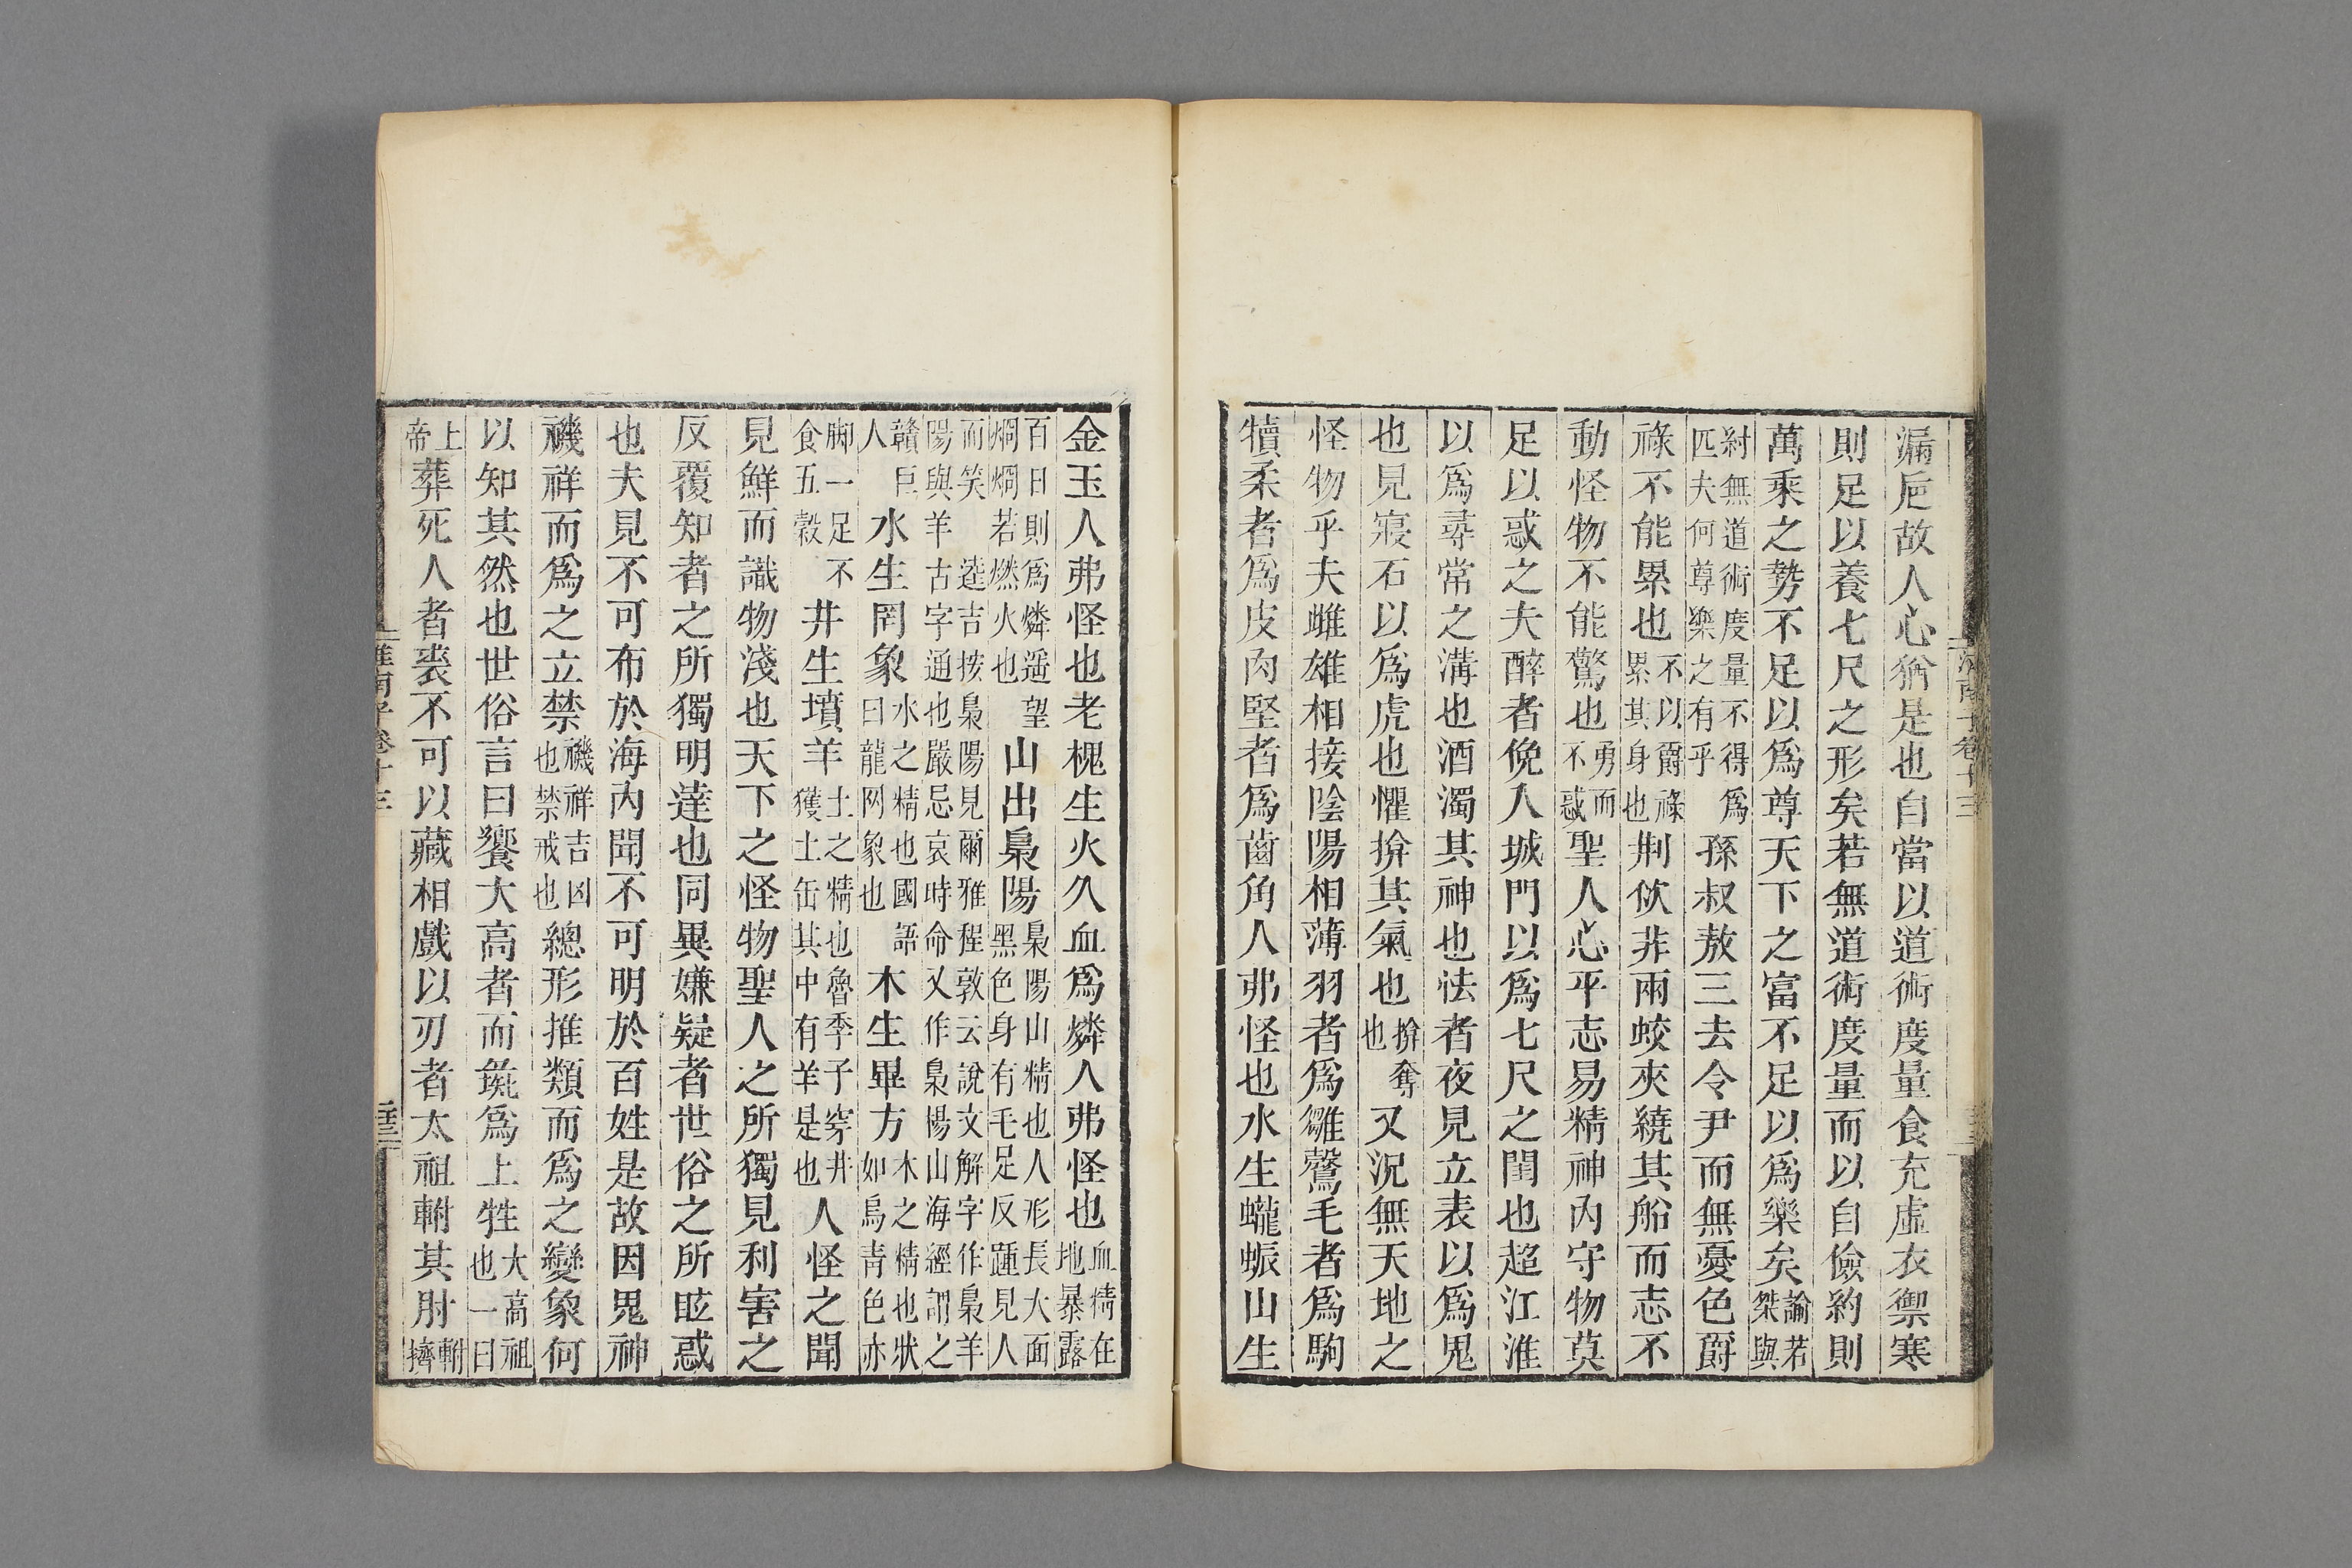 漏巵故人心猶是也自當以道術度量食充虛衣禦寒
則足以養七尺之形矣若無道術度量而以自儉約則
萬乘之勢不足以爲尊天下之富不足以爲樂矣諭若桀與
紂無道術度量不得爲匹夫何尊樂之有乎孫叔敖三去令尹而無憂色爵
祿不能累也不以爵祿累其身也荆佽非兩蛟夾繞其船而志不
動怪物不能驚也勇而不惑聖人心平志易精神內守物莫
足以惑之夫醉者俛入城門以爲七尺之閨也超江淮
以爲尋常之溝也酒濁其神也怯者夜見立表以爲鬼
也見寢石以爲虎也懼揜其氣也揜奪也又況無天地之
怪物乎夫雌雄相接陰陽相薄羽者爲雛鷇毛者爲駒
犢柔者爲皮肉堅者爲齒角人弗怪也水生蠬蜄山生
金玉人弗怪也老槐生火久血爲燐人弗怪也血精在地暴露
百日則爲燐遥望烱烱若燃火也山出梟陽梟陽山精也人形長大面黑色身有毛足反踵見人
而笑 逵吉按梟陽見爾雅程敦云說文解字作梟羊陽與羊古字通也嚴忌哀時命又作梟楊山海經謂之
贛巨人水生罔象水之精也國語曰龍罔象也木生畢方木之精也狀如鳥青色亦
脚一足不食五穀井生墳羊土之精也魯季子穿井獲土缶其中有羊是也人怪之聞
見鮮而識物淺也天下之怪物聖人之所獨見利害之
反覆知者之所獨明達也同異嫌疑者世俗之所眩惑
也夫見不可布於海內聞不可明於百姓是故因鬼神
禨祥而爲之立禁禨祥吉凶也禁戒也總形推類而爲之變象何
以知其然也世俗言曰饗大高者而彘爲上牲大高祖也一曰
上帝葬死人者裘不可以藏相戲以刃者太祖軵其肘軵擠
淮南子卷十三